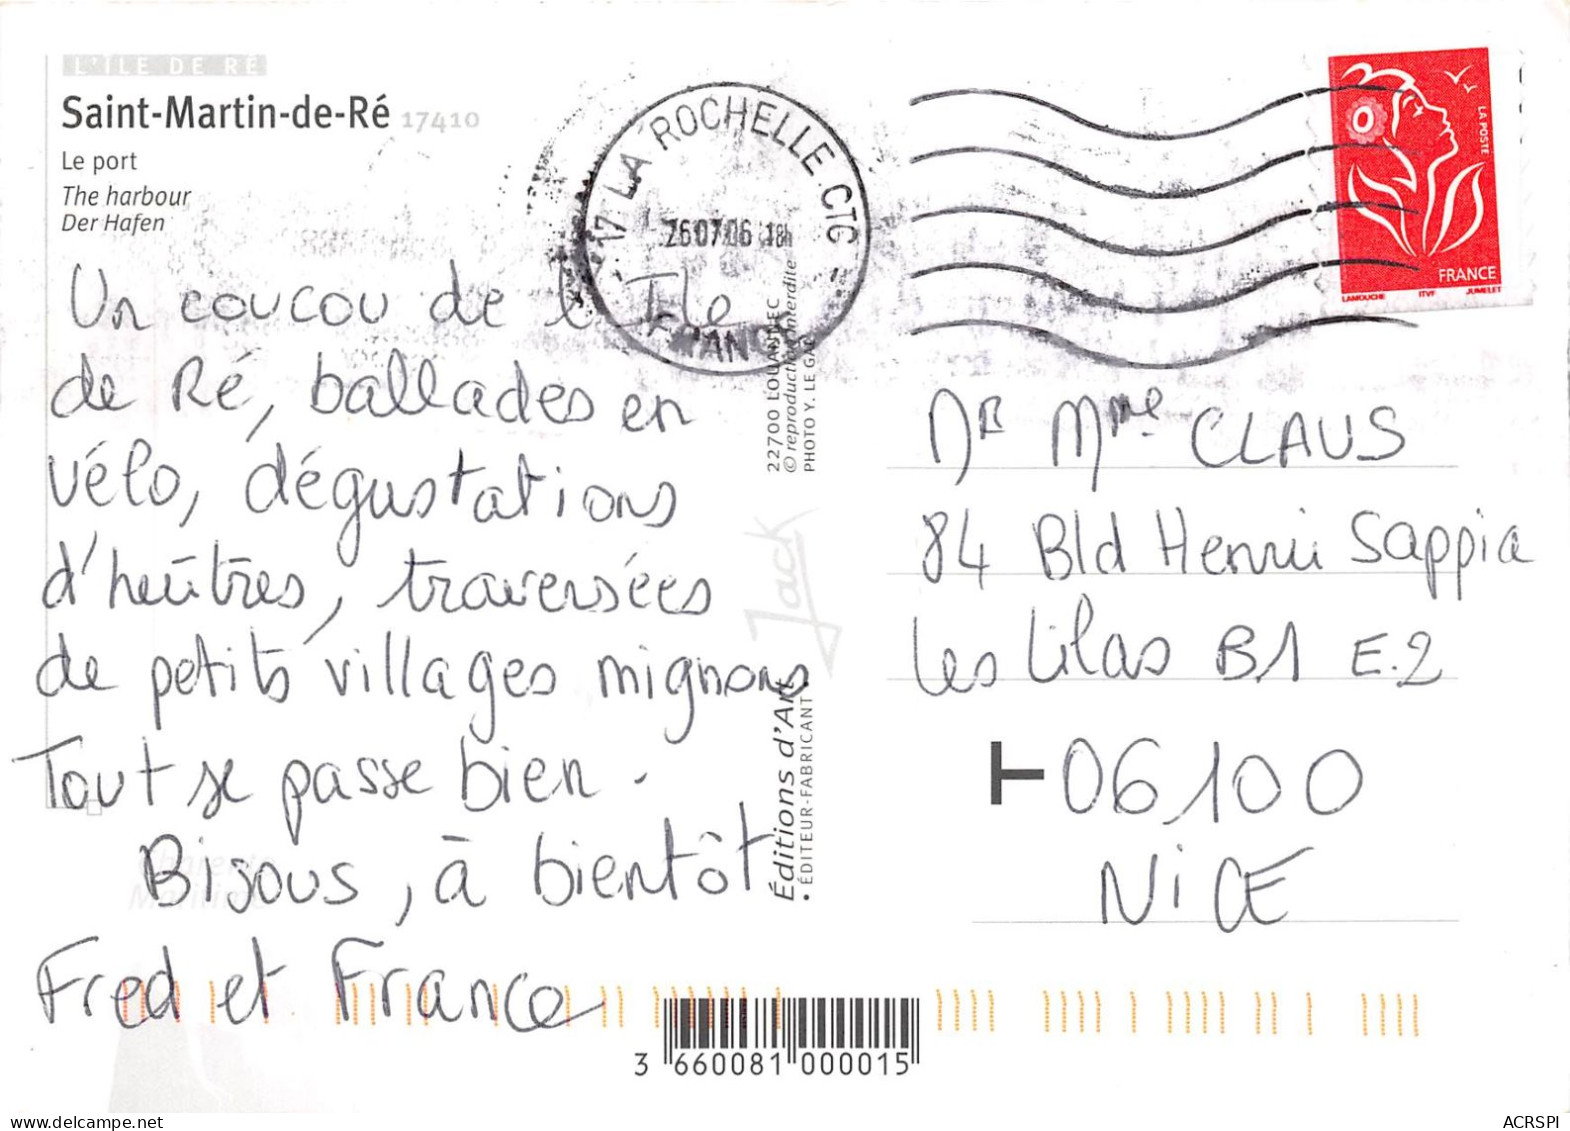 L'ÎLE DE RÉ
Saint-Martin-de-Ré 17410
Le port
The harbour
Der Hafen
17 LA ROCHELLE CTC
26.07.06 18h
FRANCE
LA POSTE
FRANCE
LAMOUCHE ITVF JUMELET
Un coucou de l'Ile
de Ré, ballades en
vélo, dégustations
d'huîtres, traversées
de petits villages mignons
Tout se passe bien.
Bisous, à bientôt
Fred et France
22700 LOUANNEC
© reproduction interdite
PHOTO Y. LE GAL
Jack
Éditions d'Art
• ÉDITEUR-FABRICANT •
Mr Mme CLAUS
84 Bld Henri Sappia
Les Lilas B1 E.2
T 06100
NiCE
Charente
Maritime
3 660081 000015
ACRSPI